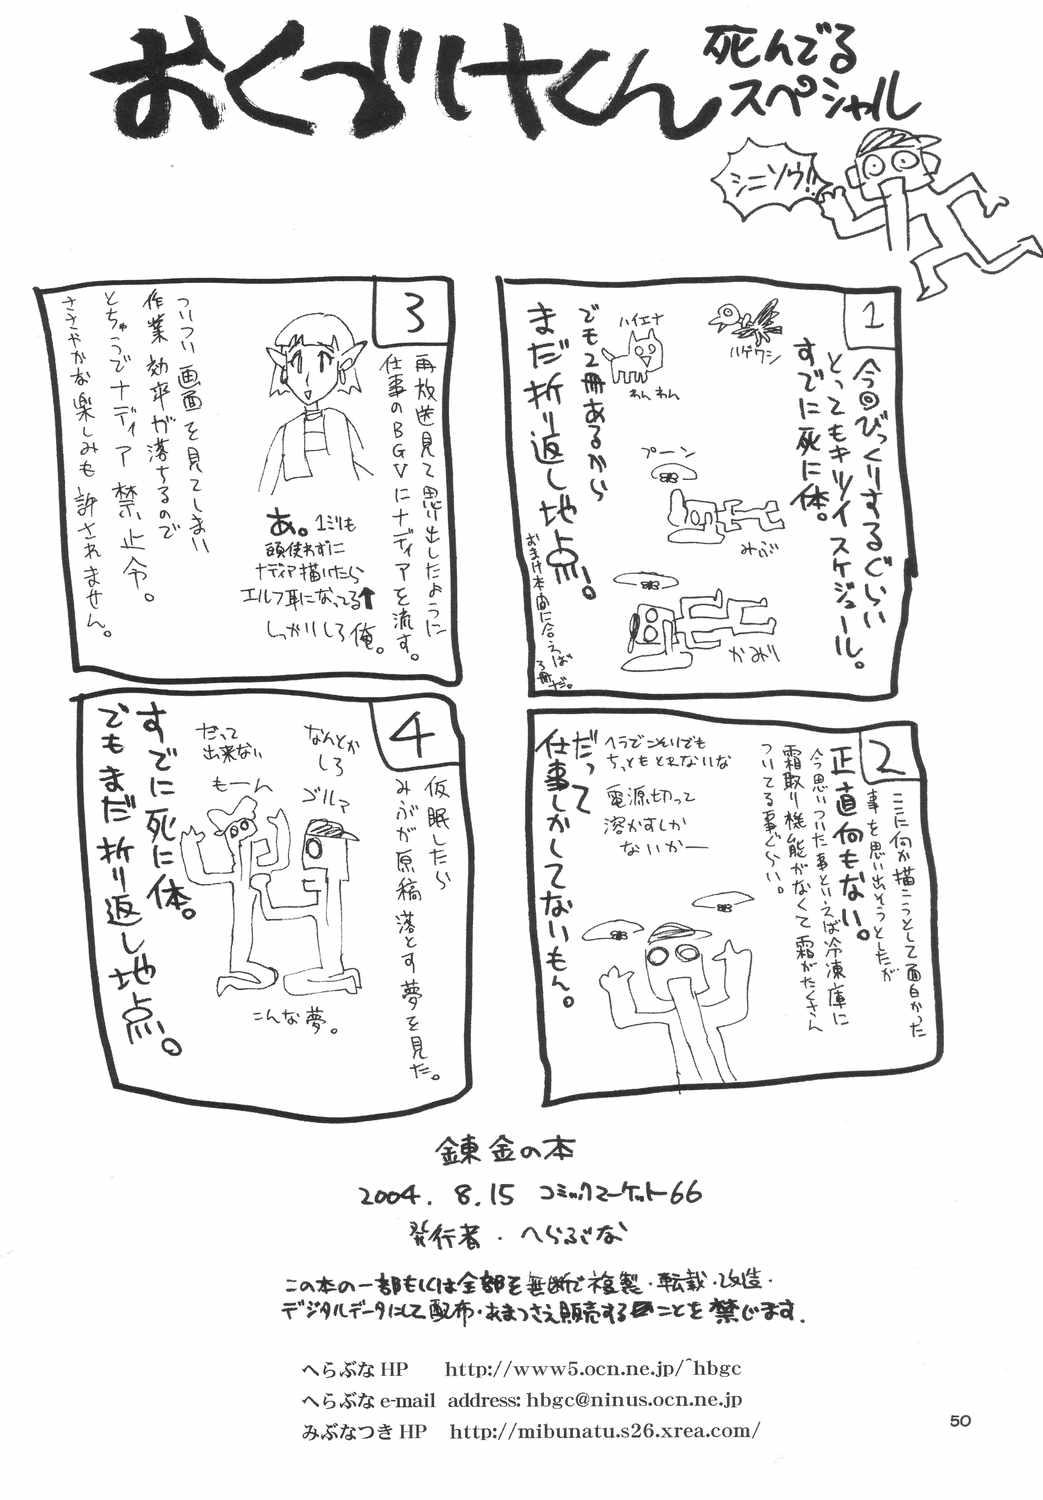 おくづけくん
死んでる
スペシャル
シニソウ!!
1
今回びっくりするぐらい
とってもキツイスケジュール。
すでに死に体。
ハゲワシ
ハイエナ
わんわん
でも2冊あるから
まだ折り返し地点。
プーン
みぶ
かみり
おまけ本間に合えば
3冊だ。
2
ここに何か描こうとして面白かった
事を思い出そうとしたが
正直何もない。
今思いついた事といえば冷凍庫に
霜取り機能がなくて霜がたくさん
ついてる事ぐらい。
ヘラでこそいでも
ちっともとれないな
電源切って
溶かすしか
ないかー
だって
仕事しかしてないもん。
3
再放送見て思い出したように
仕事のBGVにナディアを流す。
あ。1ミリも
頭使わずに
ナディア描いたら
エルフ耳になってる↑
しっかりしろ俺。
ついつい画面を見てしまい
作業効率が落ちるので
とちゅうでナディア禁止令。
ささやかな楽しみも許されません。
4
仮眠したら
みぶが原稿落とす夢を見た。
なんとか
しろ
ゴルァ
だって
出来ない
もーん
こんな夢。
すでに死に体。
でもまだ折り返し地点。
錬金の本
2004.8.15 コミックマーケット66
発行者・へらぶな
この本の一部もしくは全部を無断で複製・転載・改造・
デジタルデータにして配布・あまつさえ販売することを禁じます.
へらぶなHP http://www5.ocn.ne.jp/~hbgc
へらぶなe-mail address: hbgc@ninus.ocn.ne.jp
みぶなつきHP http://mibunatu.s26.xrea.com/
50